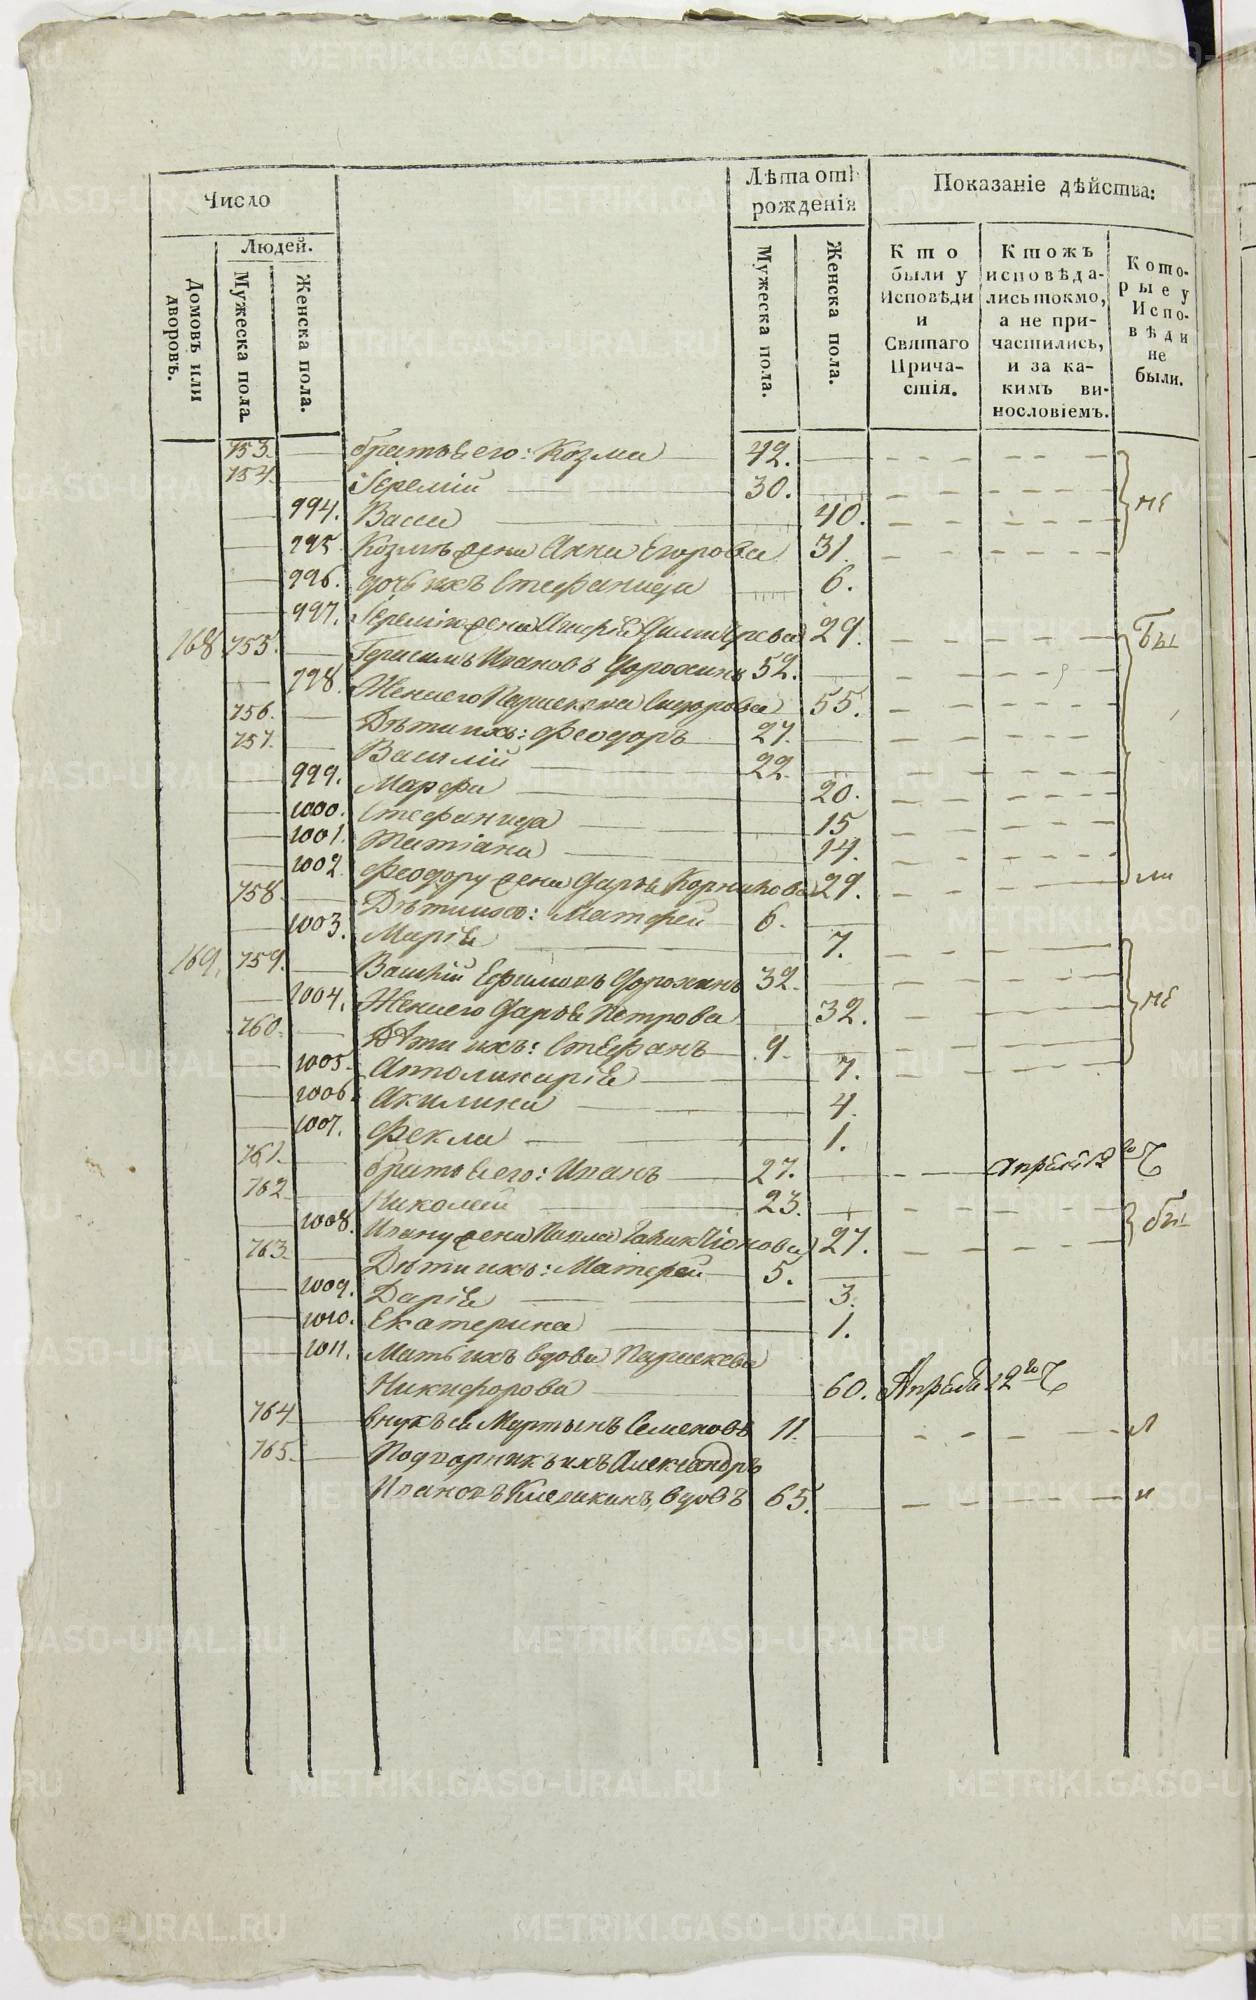 Число
Людей.
Домовъ или дворовъ.
Мужеска пола.
Женска пола.
Лѣта отъ рожденія
Мужеска пола.
Женска пола.
Показаніе дѣйства:
Кто были у Исповѣди и Святаго Причастія.
Ктожъ исповѣдались токмо, а не причастились, и за какимъ винословіемъ.
Которые у Исповѣди не были.
753. братья его: Козма 42.
754. Іеремій 30. не
994. Васса 40.
995. Козмѣ жена Анна Егорова 31.
996. дочь ихъ Стефанида 6.
997. жена 29.
168 755. Герасимъ Ивановъ Дорохинъ 52. Бы
998. Жена его Параскева Сидорова 55.
756. Дѣти ихъ: Феодоръ 27.
757. Василій 22.
999. Марфа 20.
1000. Стефанида 15
1001. Татіана 14.
1002. Феодору жена Дарья Корнилова 29. ли
758. Дѣти ихъ: Матфей 6.
1003. Марія 7.
169. 759. Василій Ефимовъ Дорохинъ 32.
1004. Жена его Дарья Петрова 32. не
760. Дѣти ихъ: Стефанъ 9.
1005. Аполинарія 7.
1006. Акилина 4.
1007. Фекла 1.
761. братья его: Иванъ 27. Апрѣля 12го
762 Николай 23.
1008. Ивану жена 27. бы
763. Дѣти ихъ: Матфей 5.
1009. Дарія 3.
1010. Екатерина 1.
1011. Мать ихъ вдова Параскева
Никифорова 60. Апрѣля 12го
764 внукъ ея Мартынъ Семеновъ 11. л
765. Подворникъ ихъ Александръ
Ивановъ вдовъ 65. и
METRIKI.GASO-URAL.RU